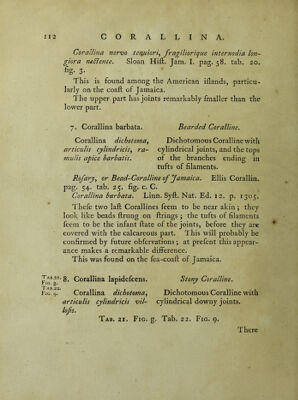 112 CORALLINA.
Corallina nervo tenuiori, fragiliorique internodia lon-
giora nectente. Sloan Hist. Jam. I. pag. 58. tab. 20.
fig. 3.
This is found among the American islands, particu-
larly on the coast of Jamaica.
The upper part has joints remarkably smaller than the
lower part.
7. Corallina barbata. Bearded Coralline.
Corallina dichotoma, articulis cylindricis, ra-
mulis apice barbatis.
Dichotomous Coralline with
cylindrical joints, and the tops
of the branches ending in
tufts of filaments.
Rosary, or Bead-Coralline of Jamaica. Ellis Corallin.
pag. 54. tab. 25. fig. c. C.
Corallina barbata. Linn. Syst. Nat. Ed. 12. p. 1305.
These two last Corallines seem to be near akin; they
look like beads strung on strings; the tufts of filaments
seem to be the infant state of the joints, before they are
covered with the calcareous part. This will probably be
confirmed by future observations; at present this appear-
ance makes a remarkable difference.
This was found on the sea-coast of Jamaica.
Tab. 21.
Fig. g.
Tab. 22.
Fig. 9.
8. Corallina lapidescens. Stony Coralline.
Corallina dichotoma,
articulis cylindricis vil-
losis.
Dichotomous Coralline with
cylindrical downy joints.
Tab. 21. Fig. g. Tab. 22. Fig. 9.
There